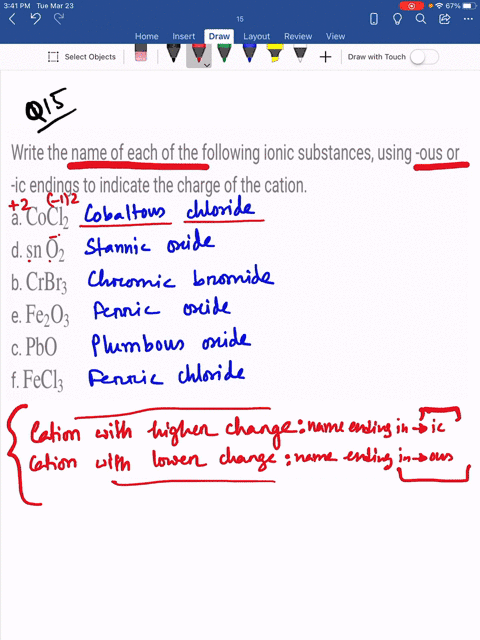 3:41 PM Tue Mar 23
67%
15
Home Insert Draw Layout Review View
Select Objects
Draw with Touch
Q15
Write the name of each of the following ionic substances, using -ous or
-ic endings to indicate the charge of the cation.
+2 (-1)2
a. CoCl2 Cobaltous chloride
d. sn O2 Stannic oxide
b. CrBr3 Chromic bromide
e. Fe2O3 Ferric oxide
c. PbO Plumbous oxide
f. FeCl3 Ferric chloride
Cation with higher change: name ending in → ic
Cation with lower change: name ending in → ous